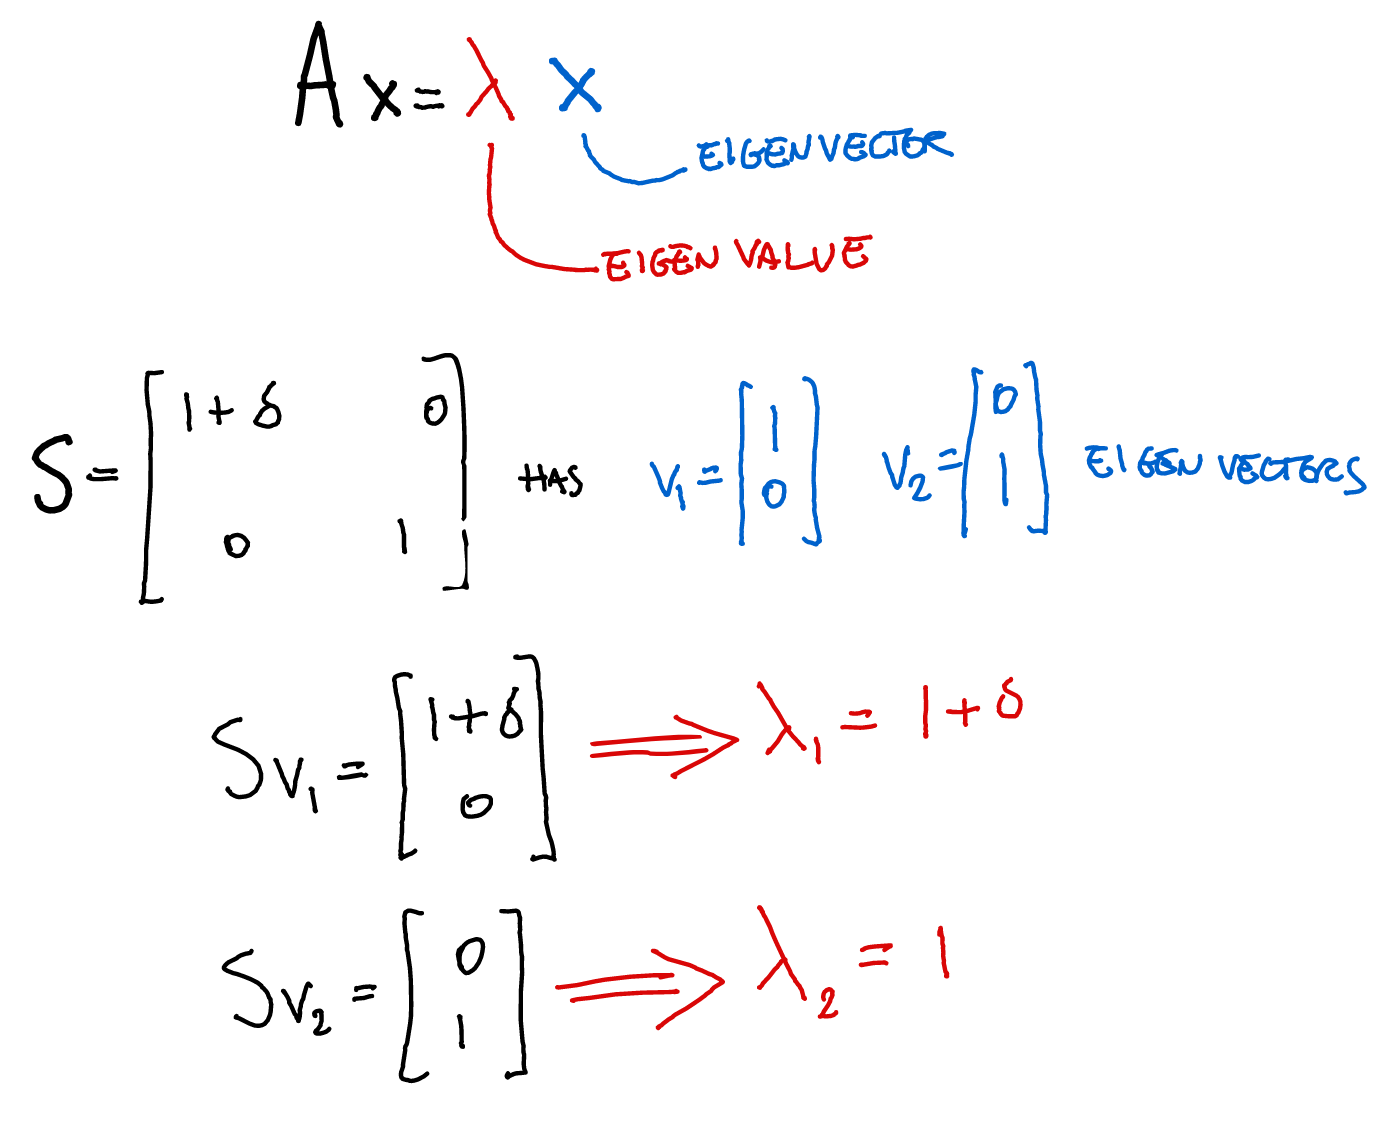 Ax = λ x
EIGENVECTOR
EIGEN VALUE
S = [1+δ 0
0 1] HAS v₁ = [1
0] v₂ = [0
1] EIGEN VECTERS
Sv₁ = [1+δ
0] ⟹ λ₁ = 1+δ
Sv₂ = [0
1] ⟹ λ₂ = 1